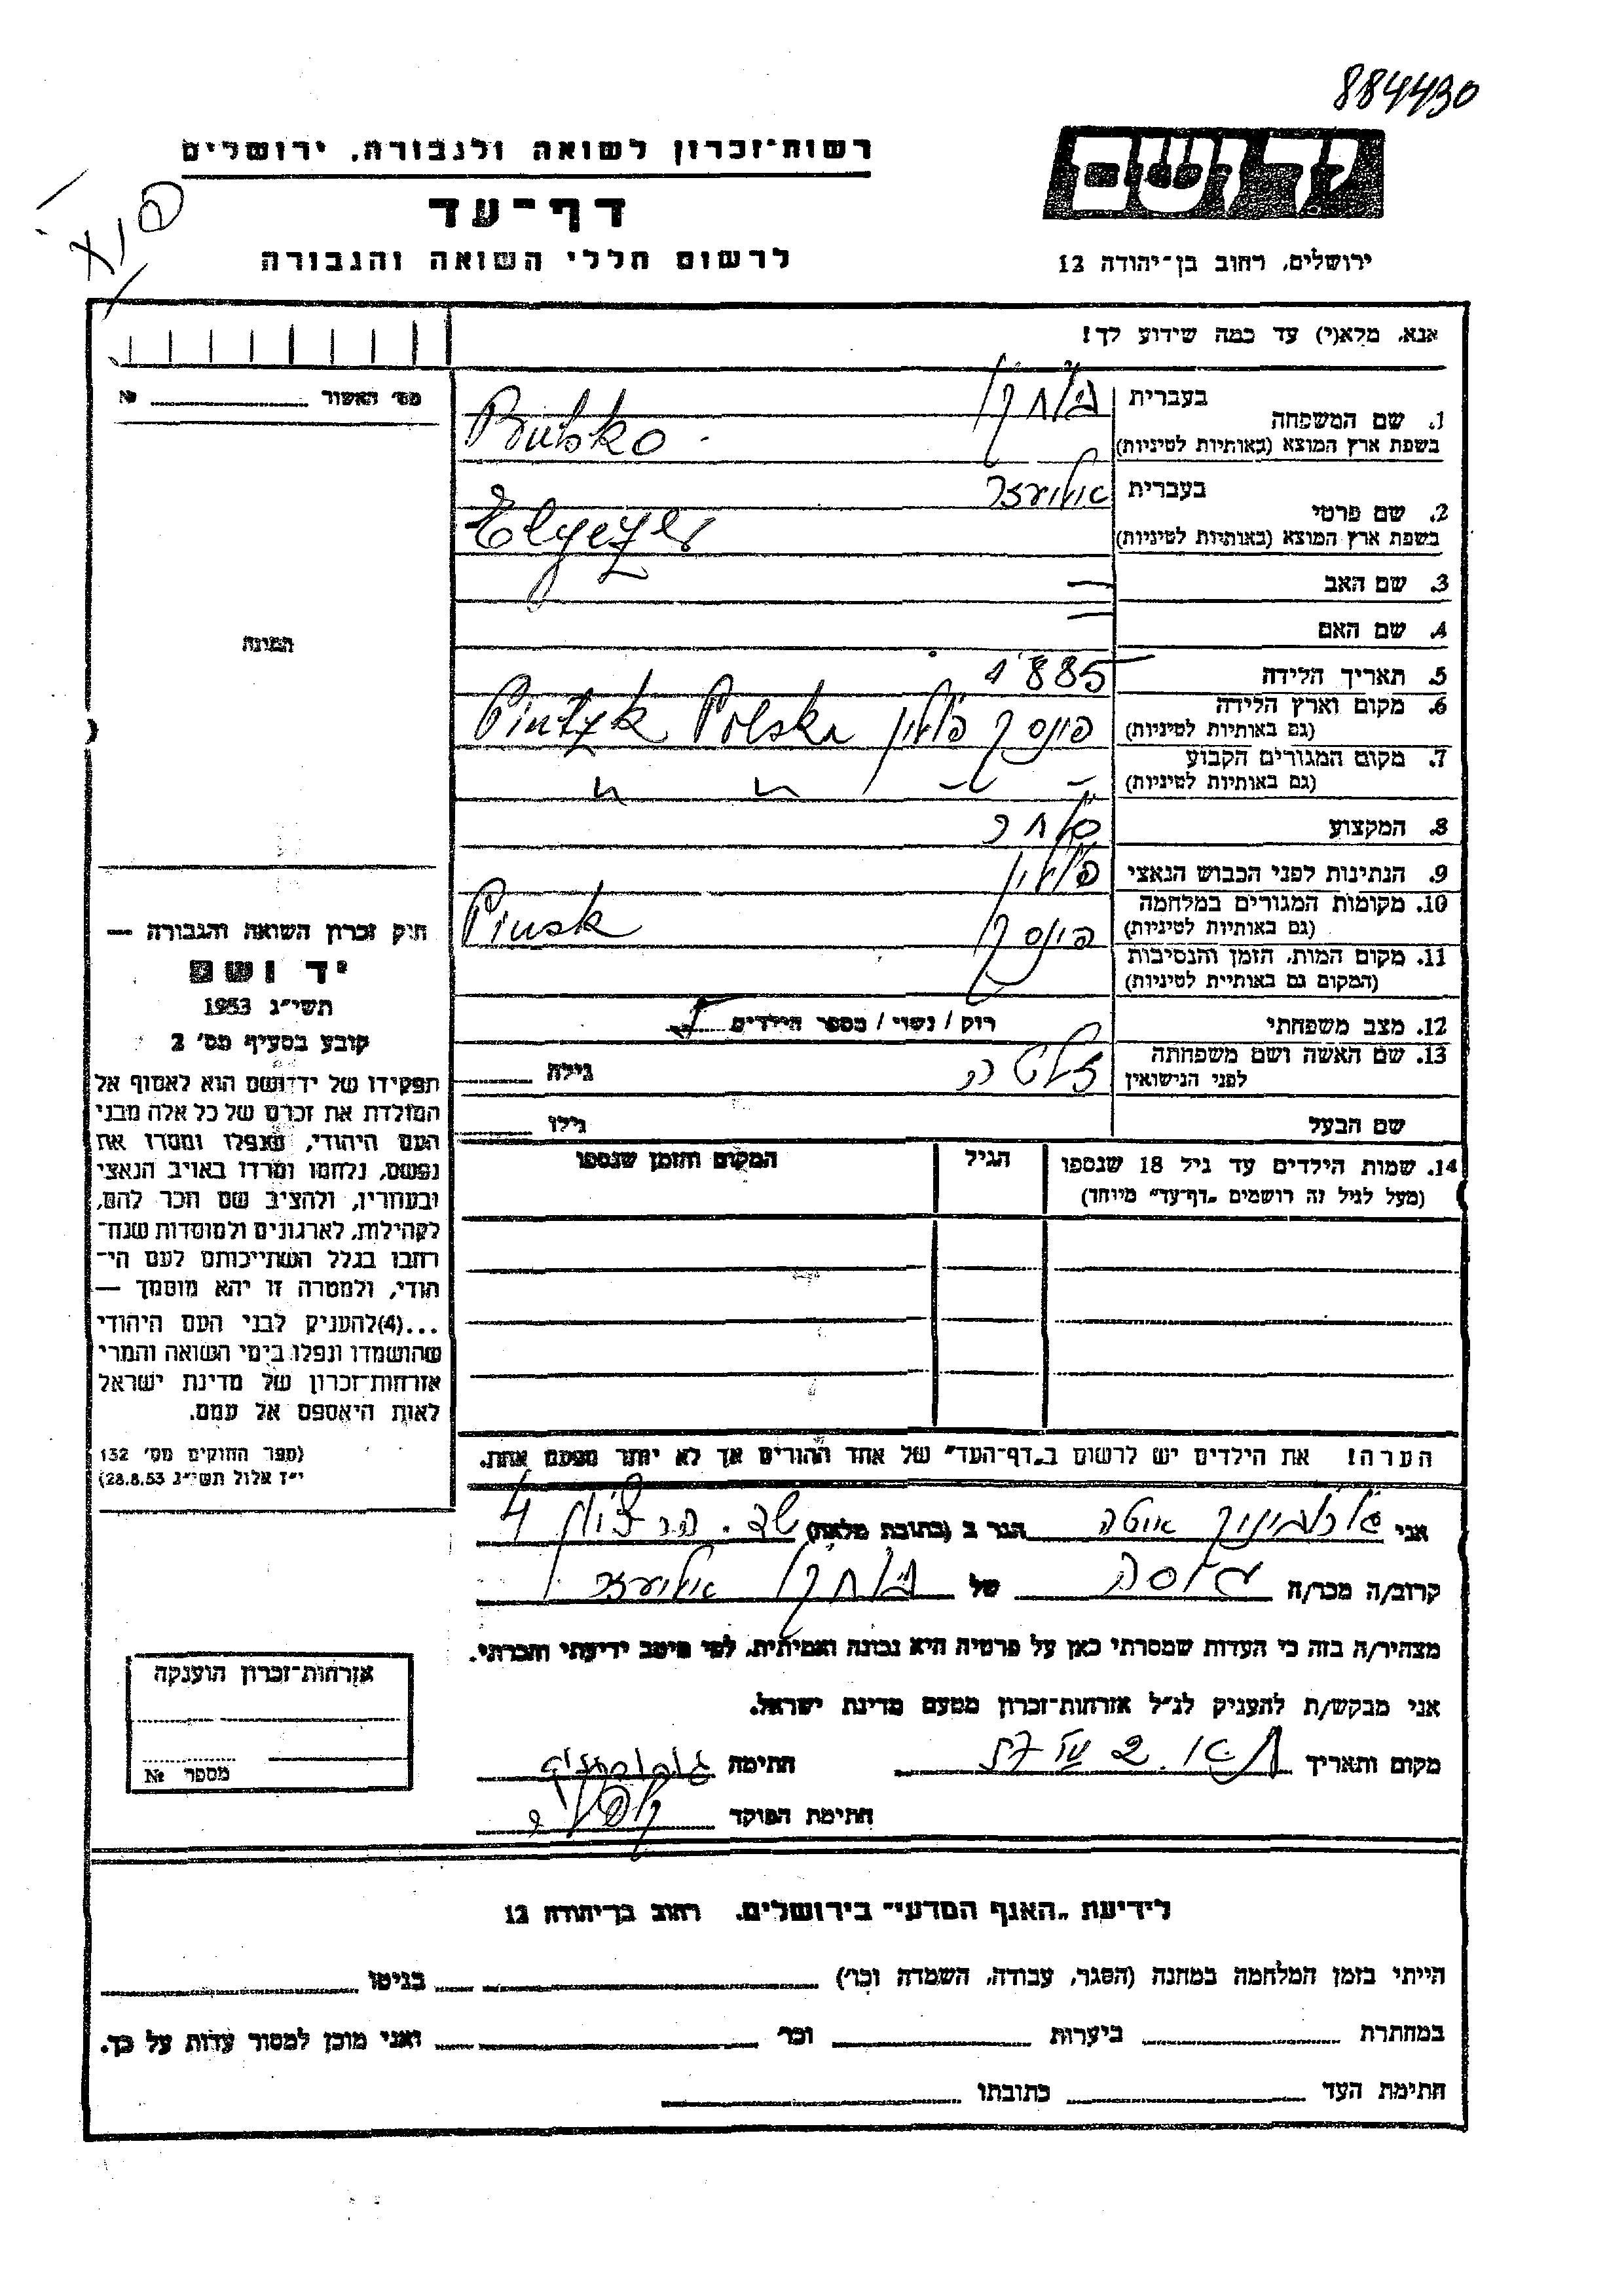 884430
רשות־זכרון לשואה ולגבורה, ירושלים
יד ושם
דף־עד
לרשום חללי השואה והגבורה
ירושלים, רחוב בן־יהודה 12
אנא, מלא(י) עד כמה שידוע לך!
מס׳ האשור № 
1. שם המשפחה
בעברית
בשפת ארץ המוצא (באותיות לטיניות)
Bubko
2. שם פרטי
בעברית אליעזר
בשפת ארץ המוצא (באותיות לטיניות)
Elyezer
3. שם האב —
4. שם האם —
5. תאריך הלידה 1885
6. מקום וארץ הלידה
(גם באותיות לטיניות)
פינסק פולין Pintzk Polska
7. מקום המגורים הקבוע
(גם באותיות לטיניות)
8. המקצוע סוחר
9. הנתינות לפני הכבוש הנאצי פולין
10. מקומות המגורים במלחמה
(גם באותיות לטיניות)
פינסק Pinsk
11. מקום המות, הזמן והנסיבות
(המקום גם באותיות לטיניות)
12. מצב משפחתי רווק / נשוי / מספר הילדים
13. שם האשה ושם משפחתה
לפני הנישואין
זלטה גילה
שם הבעל גילו
14. שמות הילדים עד גיל 18 שנספו
(מעל לגיל זה רושמים „דף־עד״ מיוחד)
הגיל
המקום והזמן שנספו
הערה! את הילדים יש לרשום ב„דף־העד״ של אחד ההורים אך לא יותר מפעם אחת.
התמונה
חוק זכרון השואה והגבורה —
יד ושם
תשי״ג 1953
קובע בסעיף מס׳ 2
תפקידו של יד־ושם הוא לאסוף אל
המולדת את זכרם של כל אלה מבני
העם היהודי, שנפלו ומסרו את
נפשם, נלחמו ומרדו באויב הנאצי
ובעוזריו, ולהציב שם וזכר להם,
לקהילות, לארגונים ולמוסדות שנח־
רבו בגלל השתייכותם לעם הי־
הודי, ולמטרה זו יהא מוסמך —
...(4)להעניק לבני העם היהודי
שהושמדו ונפלו בימי השואה והמרי
אזרחות־זכרון של מדינת ישראל
לאות היאספם אל עמם.
(ספר החוקים מס׳ 132
י״ז אלול תשי״ג 28.8.53)
אני איטה הגר ב (כתובת מלאה) שד. הר ציון 4
קרוב/ה מכר/ה של אליעזר
מצהיר/ה בזה כי העדות שמסרתי כאן על פרטיה היא נכונה ואמיתית, לפי מיטב ידיעתי והכרתי.
אני מבקש/ת להעניק לנ״ל אזרחות־זכרון מטעם מדינת ישראל.
מקום ותאריך חתימה
חתימת הפוקד
אזרחות־זכרון הוענקה
מספר №
לידיעת „האגף המדעי״ בירושלים, רחוב בן־יהודה 12
הייתי בזמן המלחמה במחנה (הסגר, עבודה, השמדה וכו׳) בגיטו
במחתרת ביערות וכו׳ ואני מוכן למסור עדות על כך.
חתימת העד כתובתו